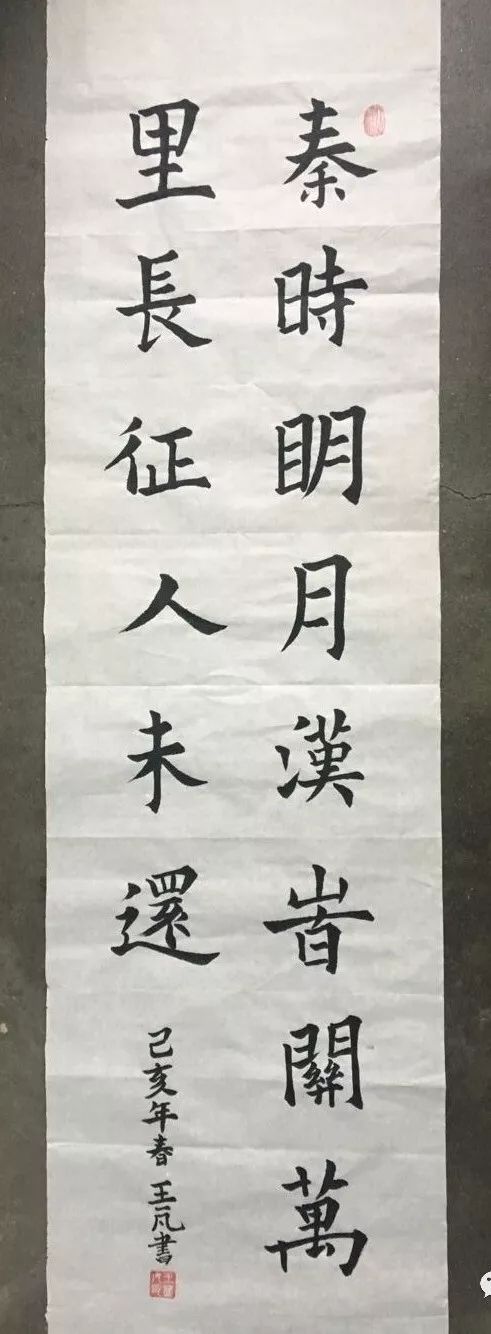 秦時眀月漢旹關萬
里長征人未還
己亥年春王凡書